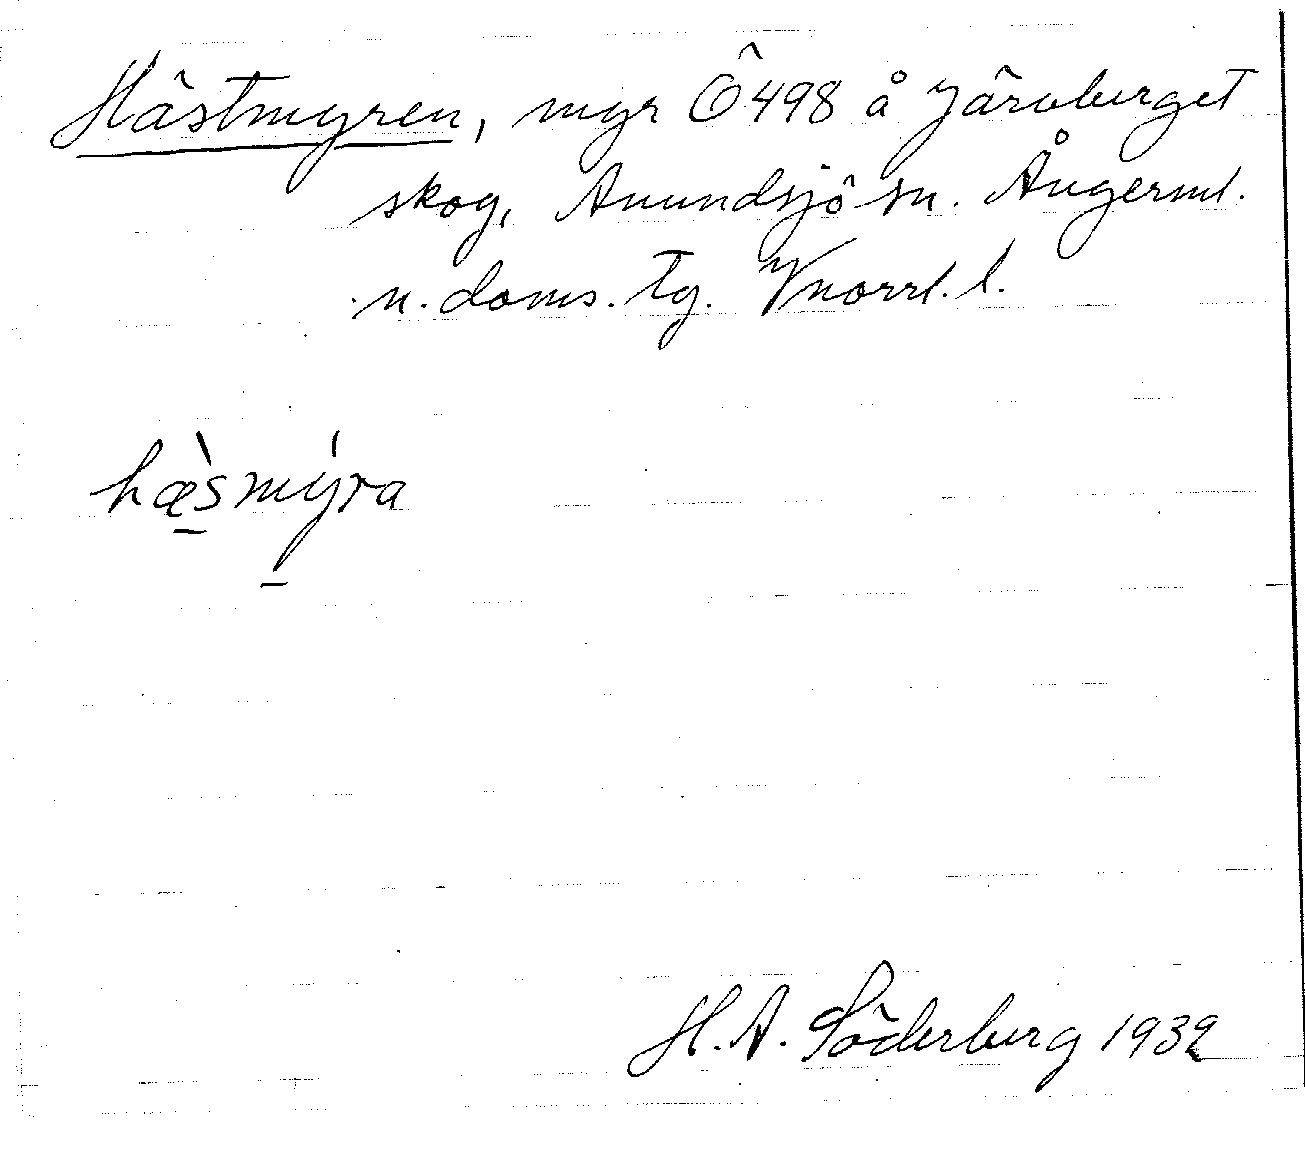 Hästmyren, mgr Ö 498 å Järvberget
skog, Anundsjö sn. Ångerml.
n. doms. tg. Vnorrl. l.
hæ̀smýra
H. A. Söderberg 1932